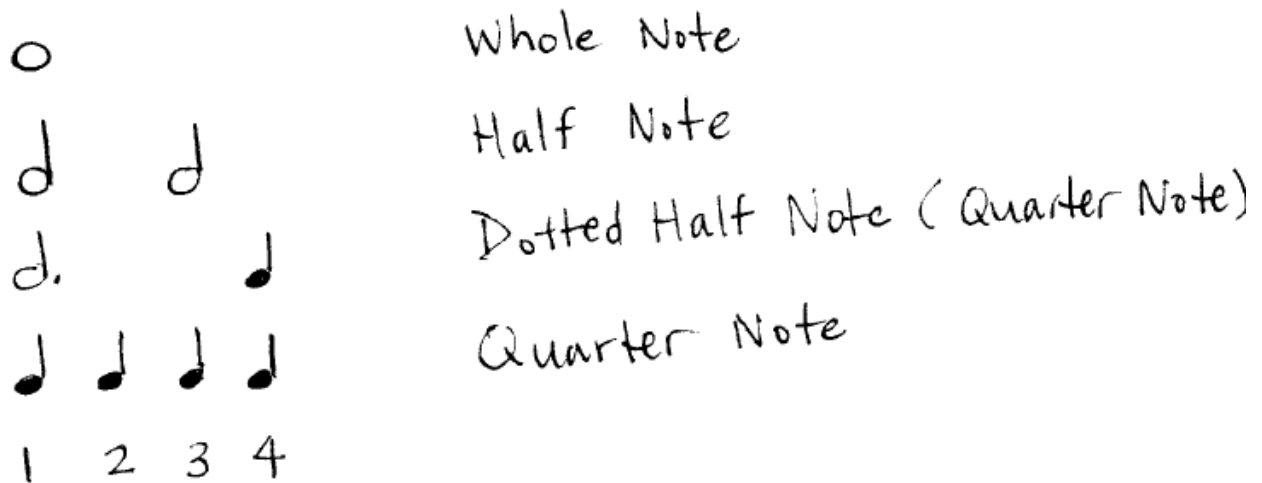 Whole Note
Half Note
Dotted Half Note (Quarter Note)
Quarter Note
1 2 3 4